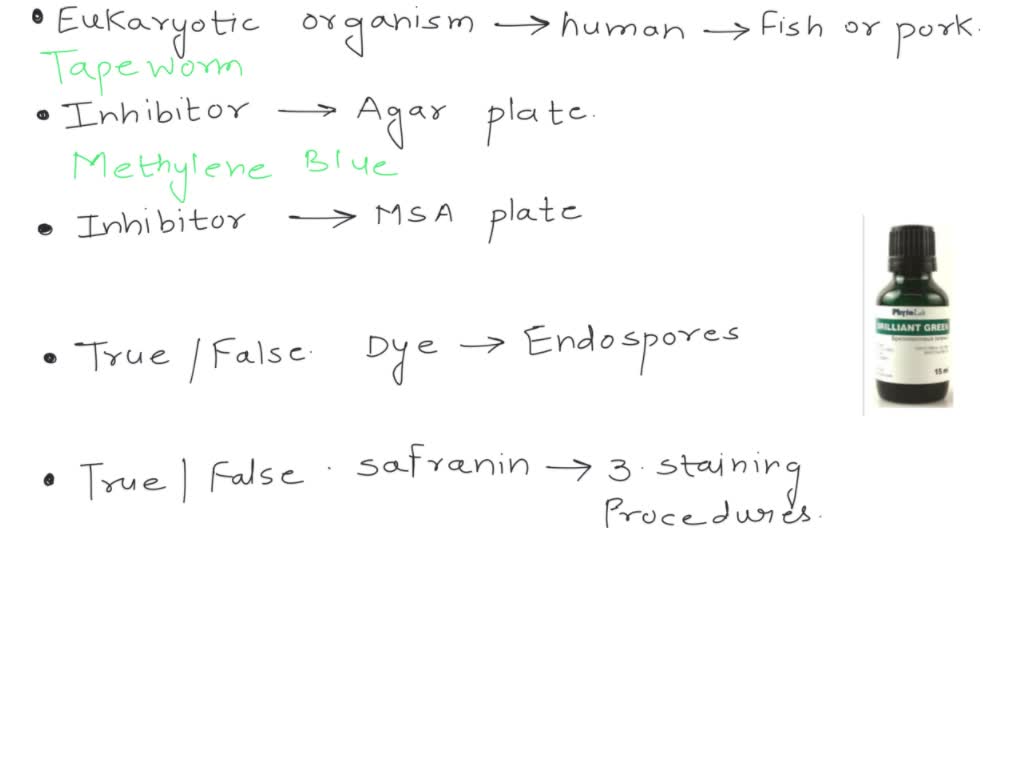 • Eukaryotic organism → human → Fish or pork.
Tapeworm
• Inhibitor → Agar plate.
Methylene Blue
• Inhibitor → MSA plate
• True / False. Dye → Endospores
• True | False. safranin → 3. staining
Procedures.
PhytoLab
BRILLIANT GREEN
15 ml